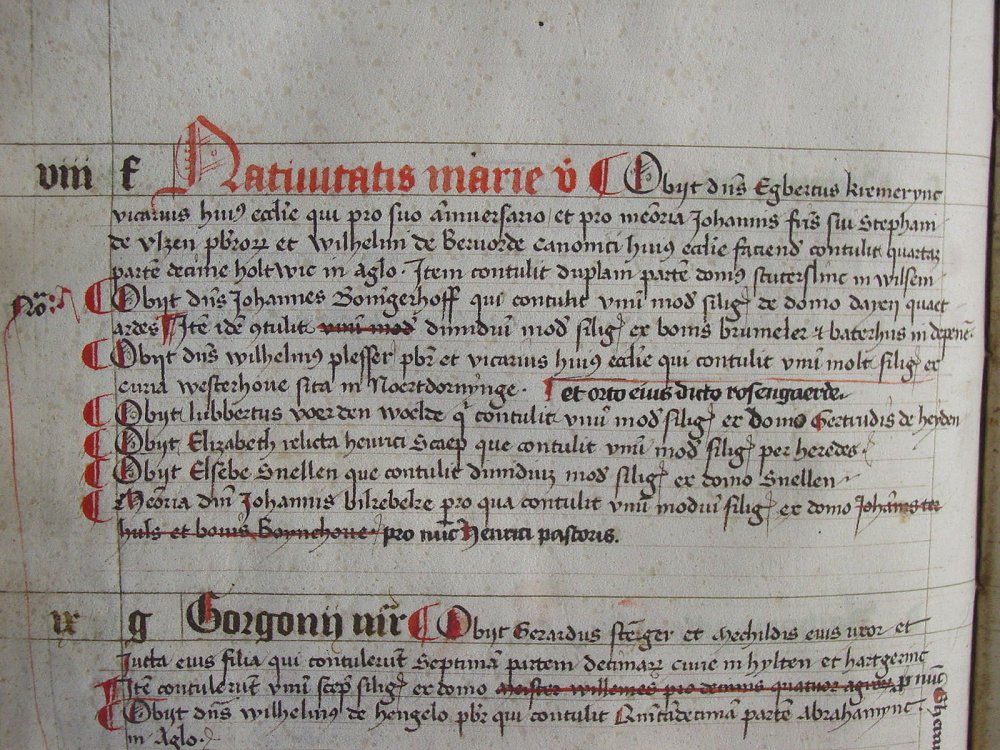 viii f Nativitatis marie v̊ Obijt dn̄s Egbertus kremerync
vicarius huiꝰ ecclīe qui pro suo āniversario et pro mēoria Johannis fr̄is sui Stephani
de Vlzen pb̄rorꝝ et wilhelmi de Bervorde canonici huiꝰ ecclīe faciend contulit quartaꝫ
partē decime holtwic in aglo · Item contulit duplam partē domꝰ in wilsem
No: Obijt dn̄s Johannes Boīngerhoff qui contulit vnū mod̄ siliḡ de domo
ardes Itē idē ꝯtulit vnū mod̄ dimidiū mod̄ siliḡ ex bonis brumeler et baterhus in depenē·
Obijt dn̄s wilhelmꝰ plesser pb̄r et vicarius huiꝰ ecclīe qui contulit vnū molt siliḡ ex
curia westerhove sita in Noertdornynge · et orto eius dicto rosengaerde·
Obijt lubbertus voerden woelde q̄ contulit vnū mod̄ siliḡ ex domo Gertrudis de heyden
Obijt Elizabeth relicta henrici Scaep que contulit vnū mod̄ siliḡ per heredes ·
Obijt Elsebe Snellen que contulit dimidiuꝫ mod̄ siliḡ ex domo Snellen ·
Mēoria dn̄i Johannis bilrebeke pro qua contulit vnū modiū siliḡ ex domo Johānis ter
huls et bonis Boynehove pro nūc henrici pastoris.
ix g Gorgonij mr̄ Obijt Gerardus et Mechildis eius vxor et
Jutta eius filia qui contulerūt Septimā partem decimarꝝ in hylten et hartgerinc
Itē contulerūt vnū scep̄ siliḡ ex domo meister willemes pro decimis quatuor p nūc
Obijt dn̄s wilhelmꝰ de hengelo pb̄r qui contulit Quītādecimā partē abrahamync
in Aglo.